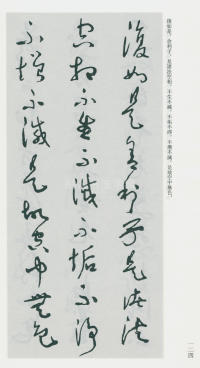 復如是。舍利子、是諸法空相，不生不滅，不垢不淨，不增不減，是故空中無色，
復如是舍利子是諸法
空相不生不滅不垢不淨
不增不減是故空中無色
一二四